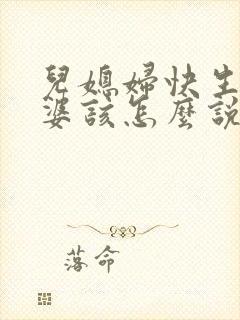 兒媳婦快生
婆該怎麼說
落命